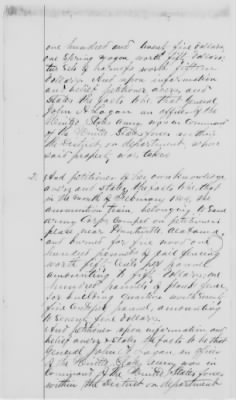 one hundred and twenty five dollars,
one spring wagon worth fifty dollars,
two sets of harness worth fifteen
dollars. And upon information
and belief petitioner avers and
states the facts to be, that General
John A. Logan an officer of the
United States Army was in command
of the United States forces within
the District, or department, where
said property was taken
2. And petitioner of her own knowledge
avers and states the facts to be, that
in the month of February 1864, the
ammunition team, belonging to
Corps camped on petitioner's
place near Huntsville, Alabama
and burnt for fire wood one
hundred pannels of rail fencing
worth fifty cents per pannel
amounting to fifty dollars; one
hundred pannels of plank fence
for building quarters worth seventy
five cents per pannel, amounting
to seventy five dollars.
And petitioner upon information and
belief avers & states the facts to be that
General John A. Logan an officer
of the United States Army was in
command of the United States forces
within the District or department